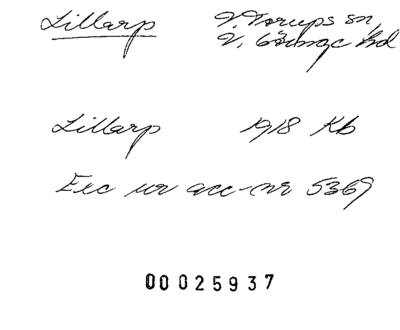 Lillarp V. Torups sn,
V. Göinge hd
Lillarp 1918 Kb
Exc ur acc-nr 5369
00025937